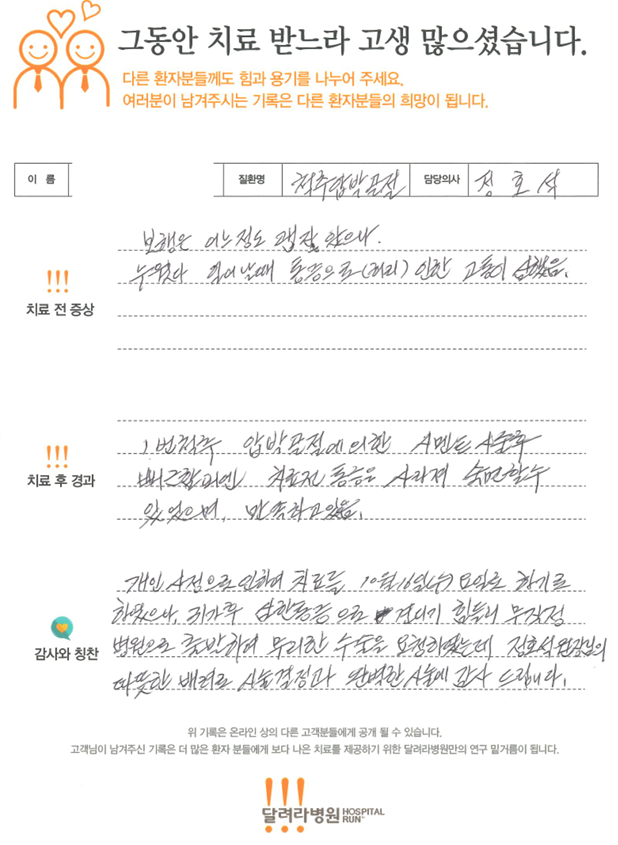 그동안 치료 받느라 고생 많으셨습니다.
다른 환자분들께도 힘과 용기를 나누어 주세요.
여러분이 남겨주시는 기록은 다른 환자분들의 희망이 됩니다.
이 름 질환명 척추압박골절 담당의사 정호석
보행은 어느정도 괜찮았으나.
누웠다 일어날때 통증으로(허리)인한 고통이 심했음.
치료 전 증상
1번척추 압박골절에의한 시멘트 시술후
치료 후 경과
치료전 통증은 사라져 숙면할수
있었으며, 만족하고있음.
개인사정으로 인하여 치료를 10월16일(수)요일로 하기로
하였으나, 귀가후 심한통증으로 견디기 힘들어 무작정
감사와 칭찬
병원으로 출발하여 무리한 수술을 요청하였는데 정호석원장님의
따뜻한 배려로 시술결정과 완벽한 시술에 감사 드립니다.
위 기록은 온라인 상의 다른 고객분들에게 공개 될 수 있습니다.
고객님이 남겨주신 기록은 더 많은 환자 분들에게 보다 나은 치료를 제공하기 위한 달려라병원만의 연구 밑거름이 됩니다.
달려라병원 HOSPITAL RUN